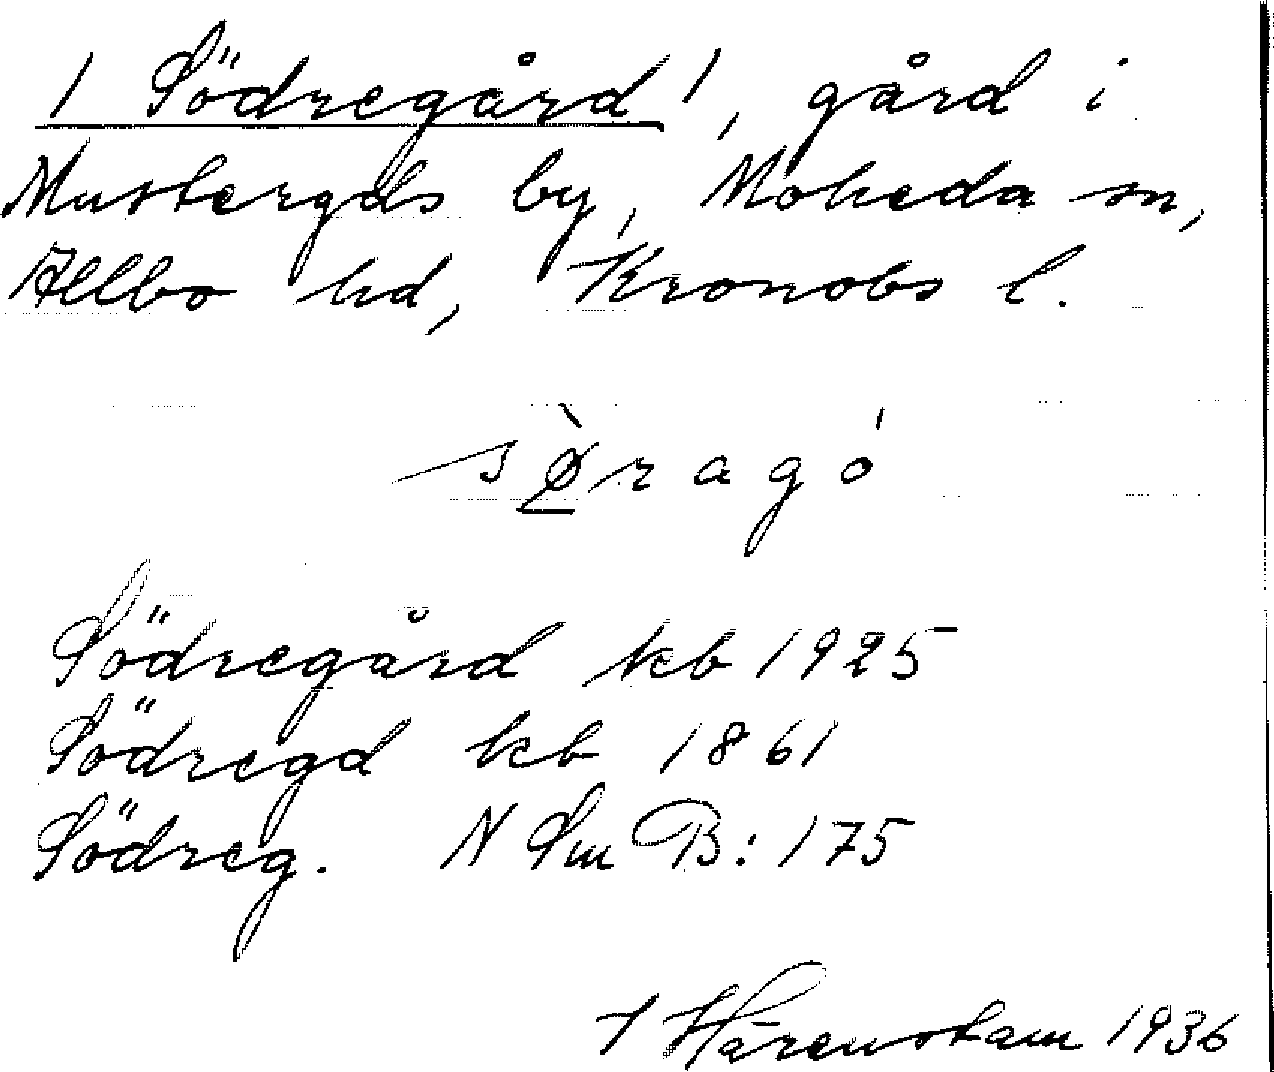 / Södregård /, gård i
Mustergds by, Moheda sn,
Allbo hd, Kronobs l.
sø̀ragó
Södregård kb 1925
Södregd kb 1861
Södreg. N Sm B: 175
Härenstam 1936